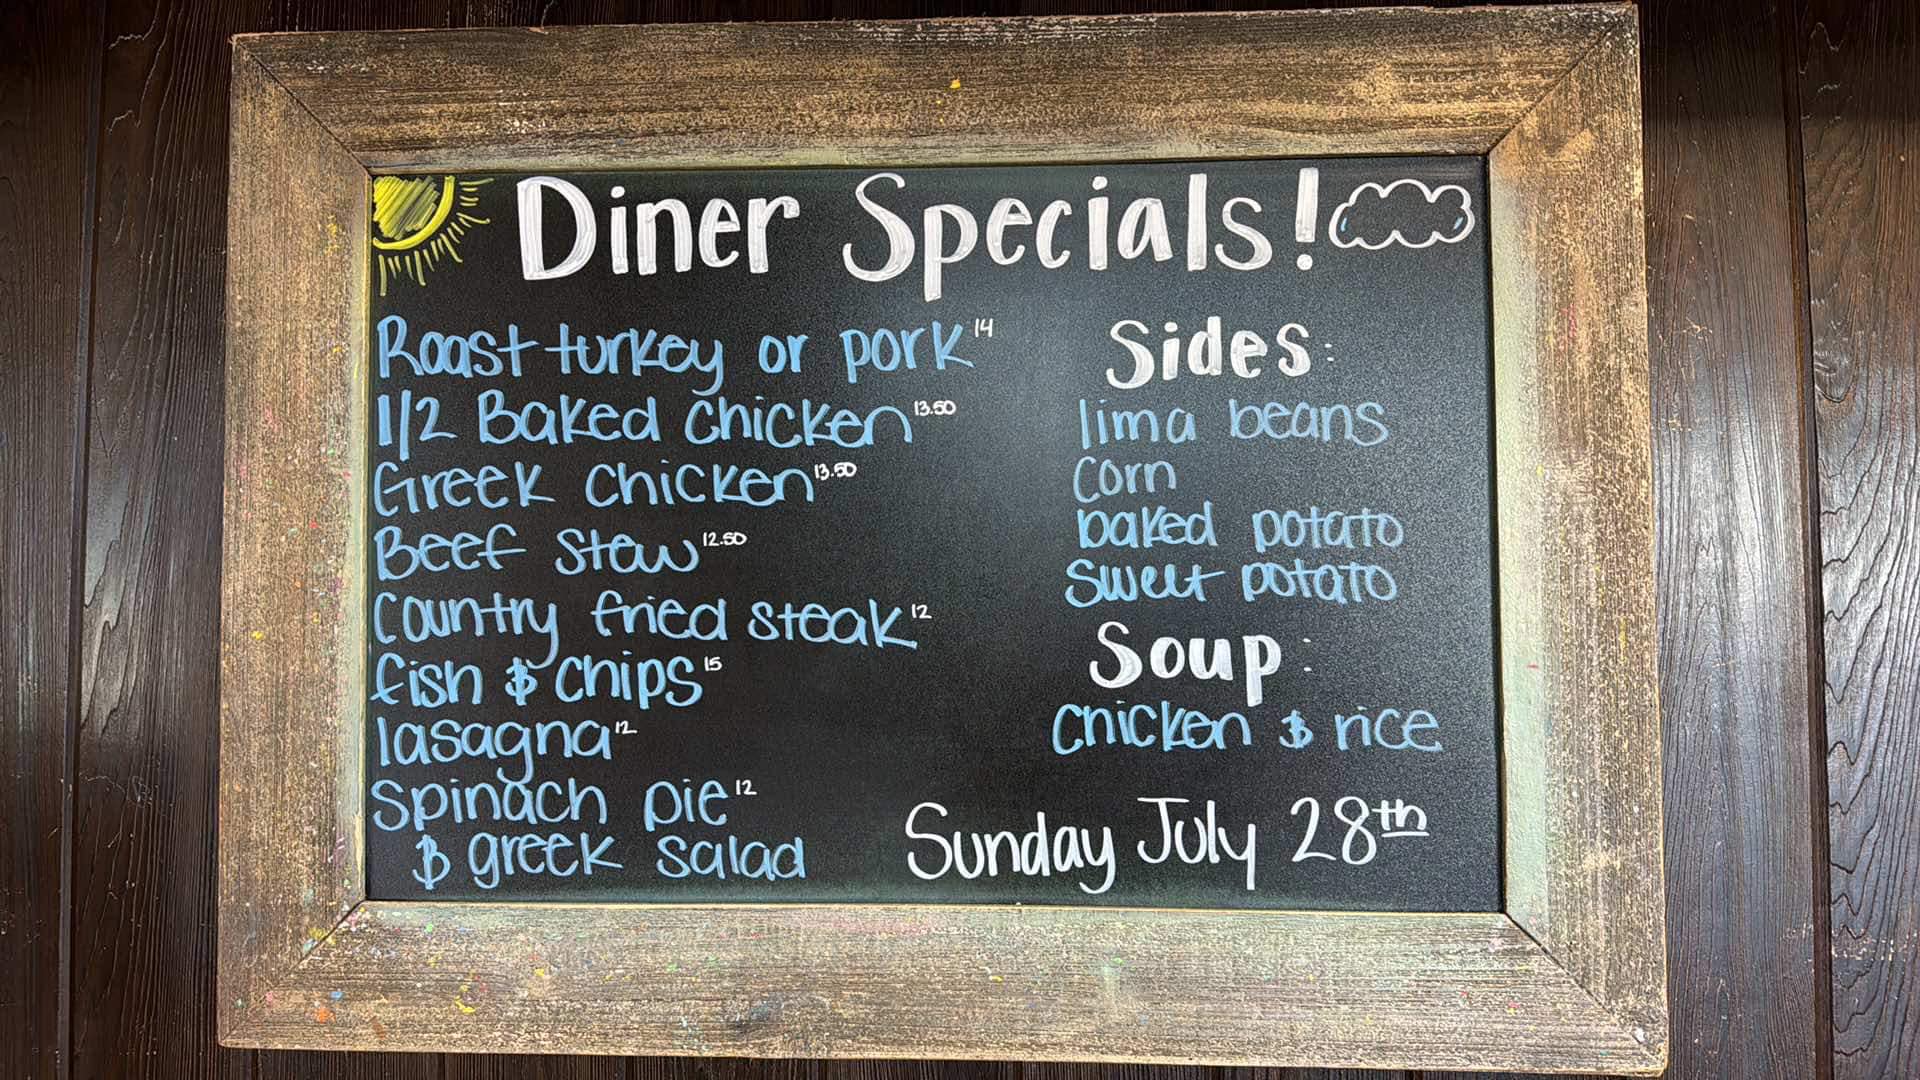 Diner Specials!
Roast turkey or pork 14
1/2 Baked Chicken 13.50
Greek Chicken 13.50
Beef Stew 12.50
Country fried steak 12
fish & chips 15
lasagna 12
Spinach pie 12
& greek salad
Sides:
lima beans
corn
baked potato
sweet potato
Soup:
Chicken & rice
Sunday July 28th